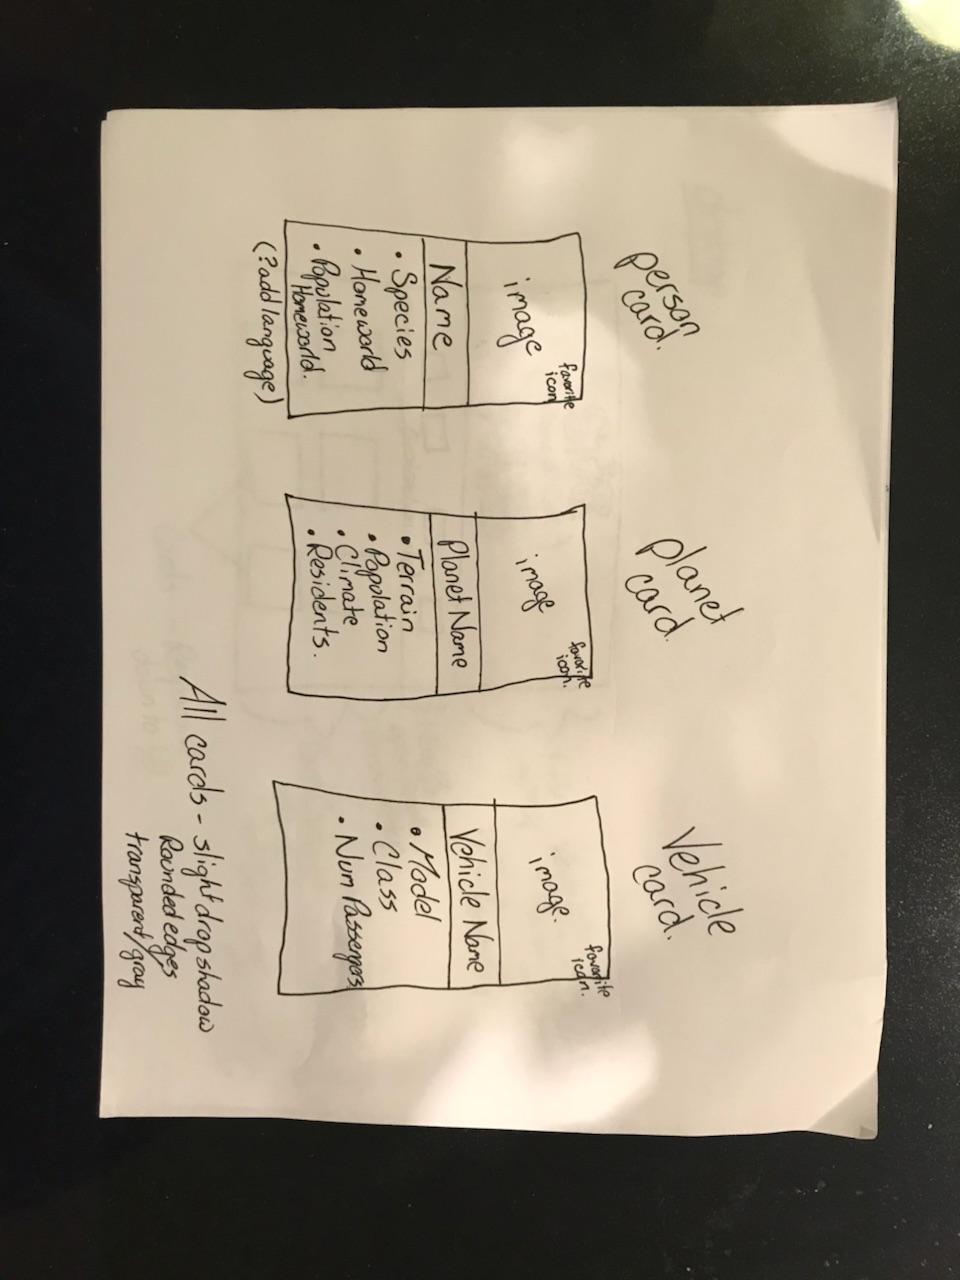 person
card.
favorite
icon
image
Name
• Species
• Homeworld
• Population
Homeworld.
(?add language)
planet
card.
favorite
icon.
image
Planet Name
• Terrain
• Population
• Climate
• Residents.
Vehicle
card.
favorite
icon.
image.
Vehicle Name
• Model
• Class
• Num Passengers
All cards - slight drop shadow
Rounded edges
transparent/gray